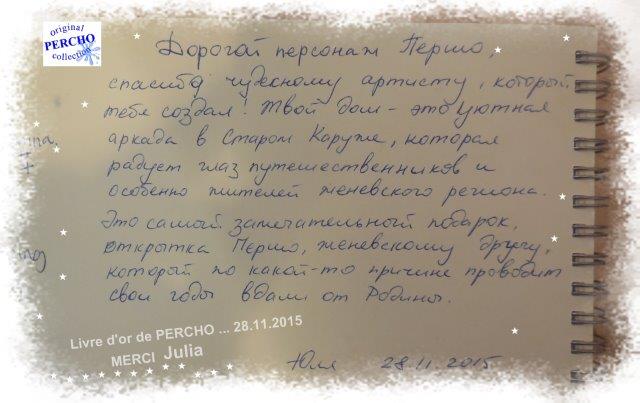 original
PERCHO
collection
Дорогой персонаж Першо,
спасибо чудесному артисту, который
тебя создал! Твой дом - это уютная
аркада в Старом Каруже, которая
радует глаз путешественников и
особенно жителей женевского региона.
Это самый замечательный подарок,
открытка Першо, женевскому другу,
который по какой-то причине проводит
свои годы вдали от Родины.
Livre d'or de PERCHO ... 28.11.2015
MERCI Julia
Юля 28.11.2015